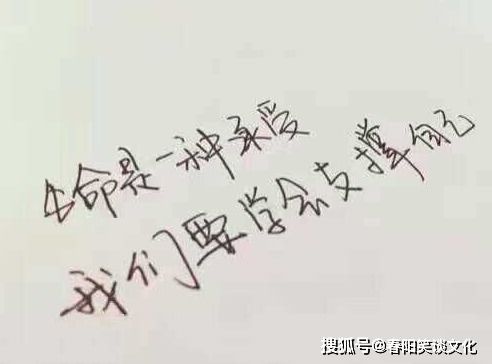 生命是一种承受
我们要学会支撑自己
搜狐号@春阳笑谈文化